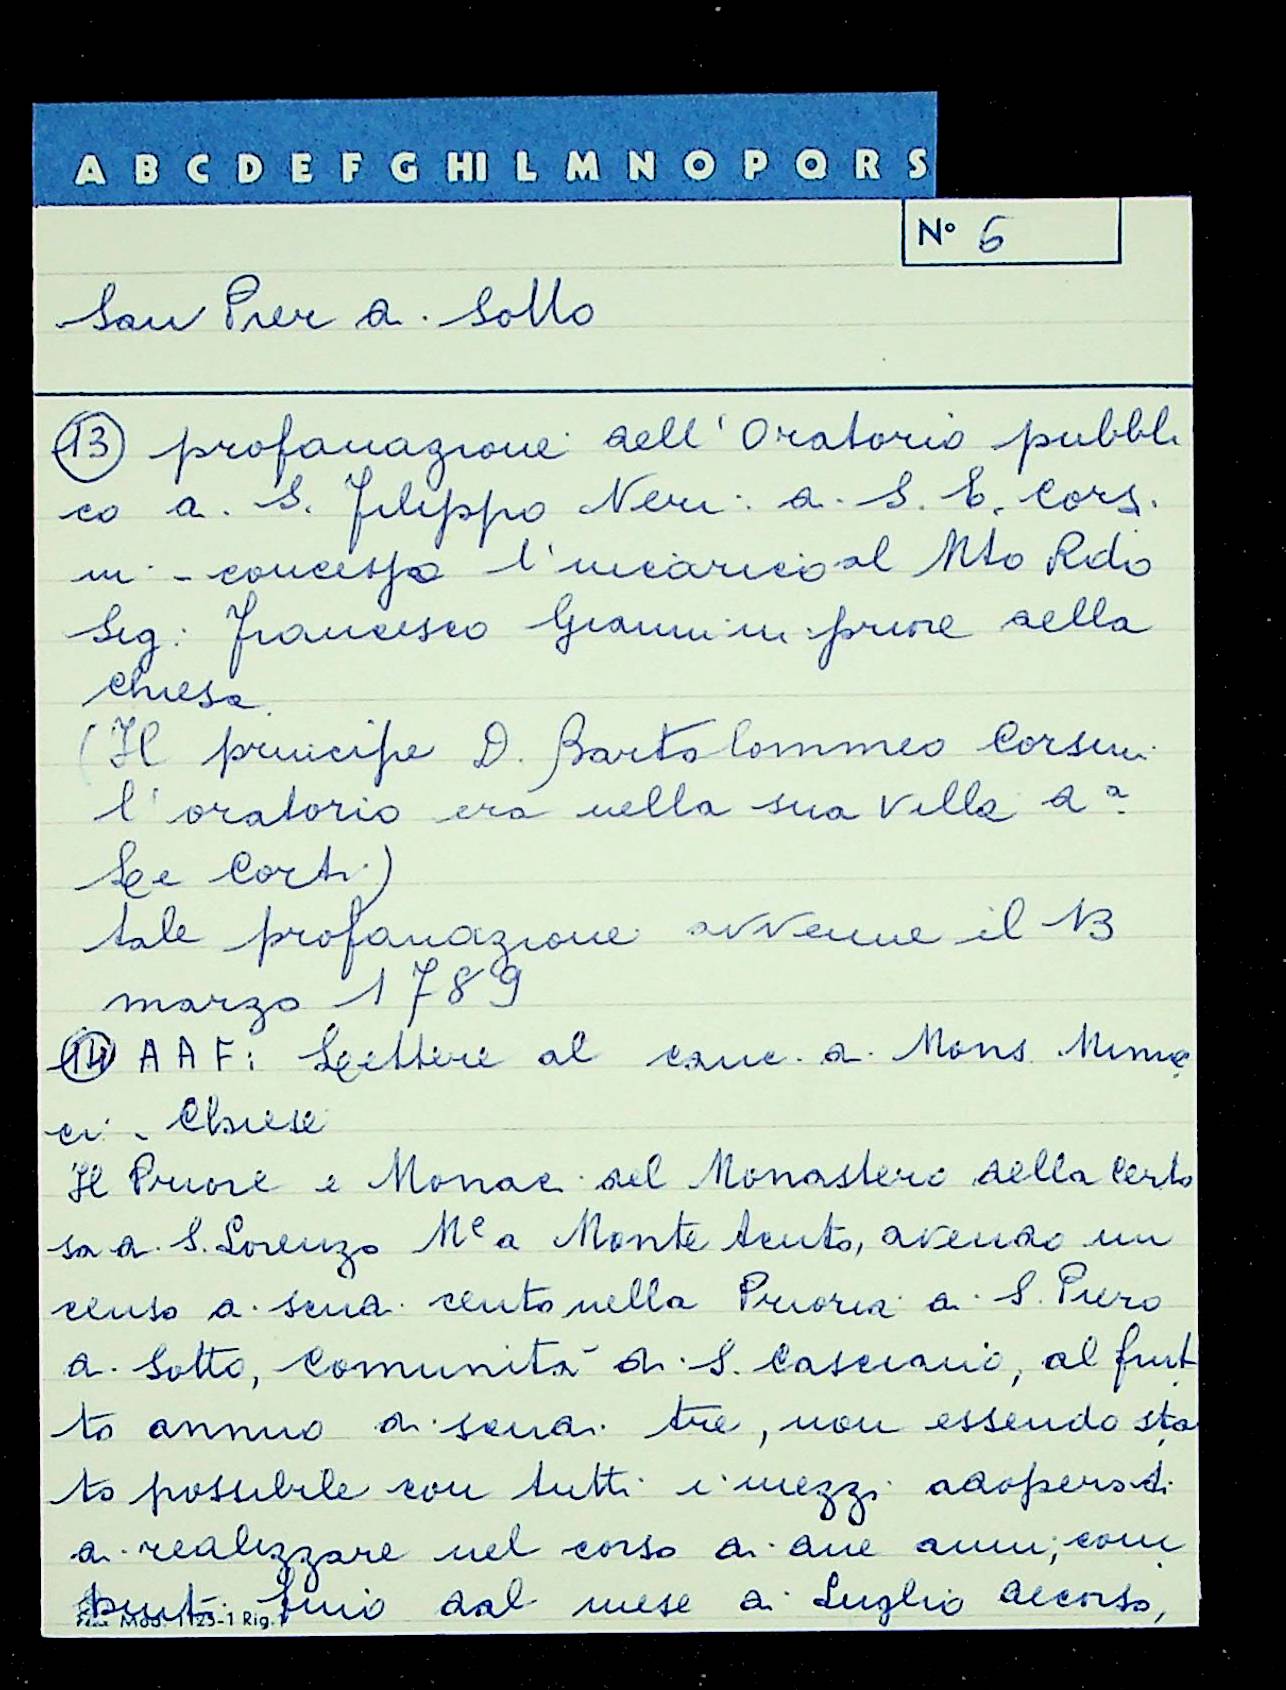 A B C D E F G HI L M N O P Q R S
N° 6
San Pier di Sotto
13 profanazione dell'Oratorio pubbli
co di S. Filippo Neri di S. E. Cors.
ni - concesso l'incarico al Mto Rdo
Sig: Francesco Giannini priore della
chiesa.
(Il principe D. Bartolommeo Corsini
l'oratorio era nella sua Villa da
Le Corti)
tale profanazione avvenne il 13
marzo 1789
14 AAF: Lettere al canc. di Mons.
ci - Chiese
Il Priore e Monaci del Monastero della Certo
sa di S. Lorenzo Me a Monte Acuto, avendo un
censo di scudi cento nella Prioria di S. Piero
di Sotto, Comunità di S. Casciano, al frut
to annuo di scudi tre, non essendo sta
to possibile con tutti i mezzi adoperati
di realizzare nel corso di due anni, com
puti fino dal mese di Luglio decorso,
Mod. 1125-1 Rig.